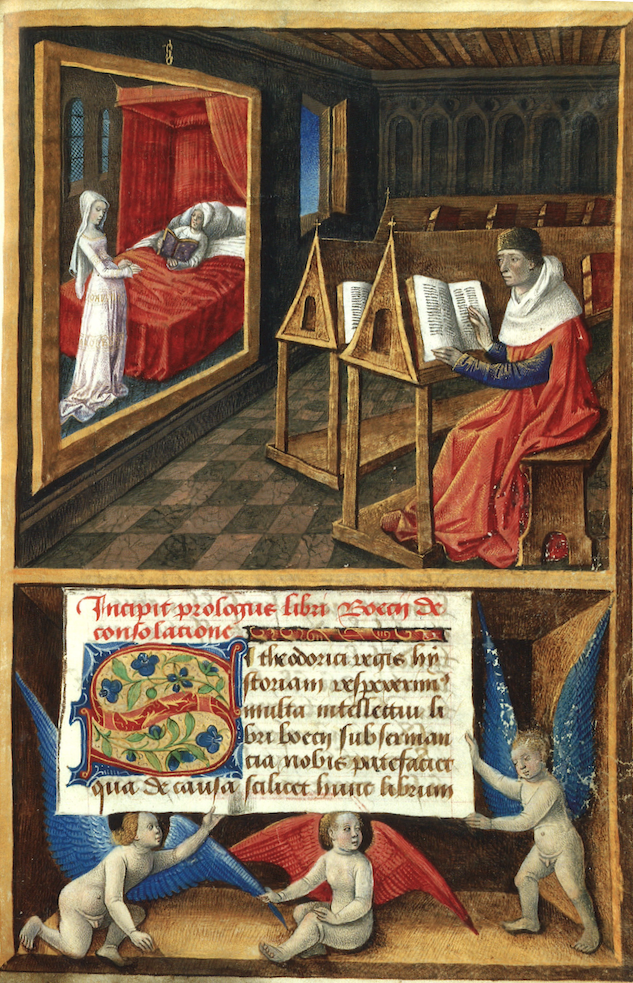 Incipit prologus libri Boecij de
consolacione
Si theodorici regis hy
storiam respexerimꝰ
multa intellectui li
bri boecij subseruian
cia nobis patefaciet
qua de causa scilicet hunc librum